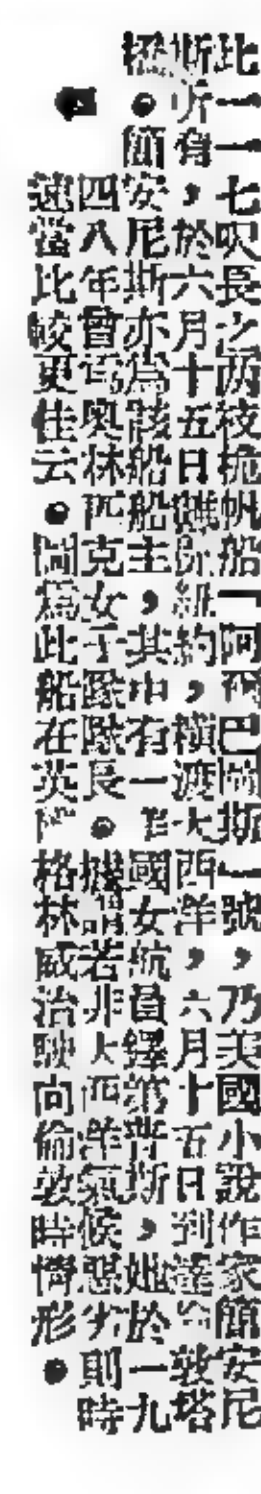 此一一七呎長之两枝桅帆船「阿爾巴圖斯」號，乃美國小說作家簡安尼
斯所有，於六月十五日離紐約，橫渡大西洋，六月十五日到達倫敦塔
橋。簡安尼斯亦為該船船主，其中有一位國女航員鐸第普斯，她於一九
四八年曾為奧林匹克女子隊隊長。據謂若非大西洋氣候惡劣則時
速當比較更佳云。圖為此船在英格林威治駛向倫敦時情形。